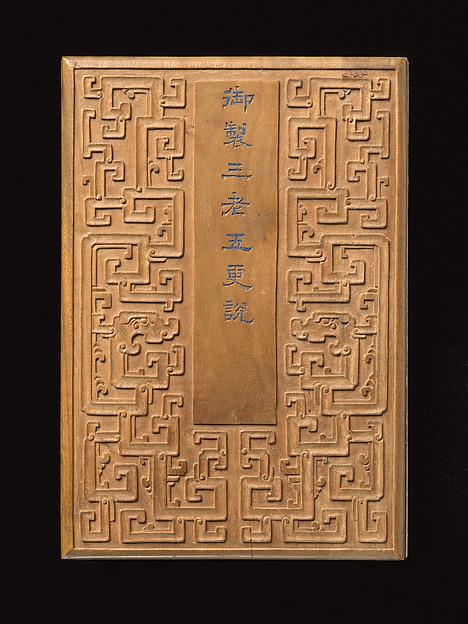 御製三老五更說